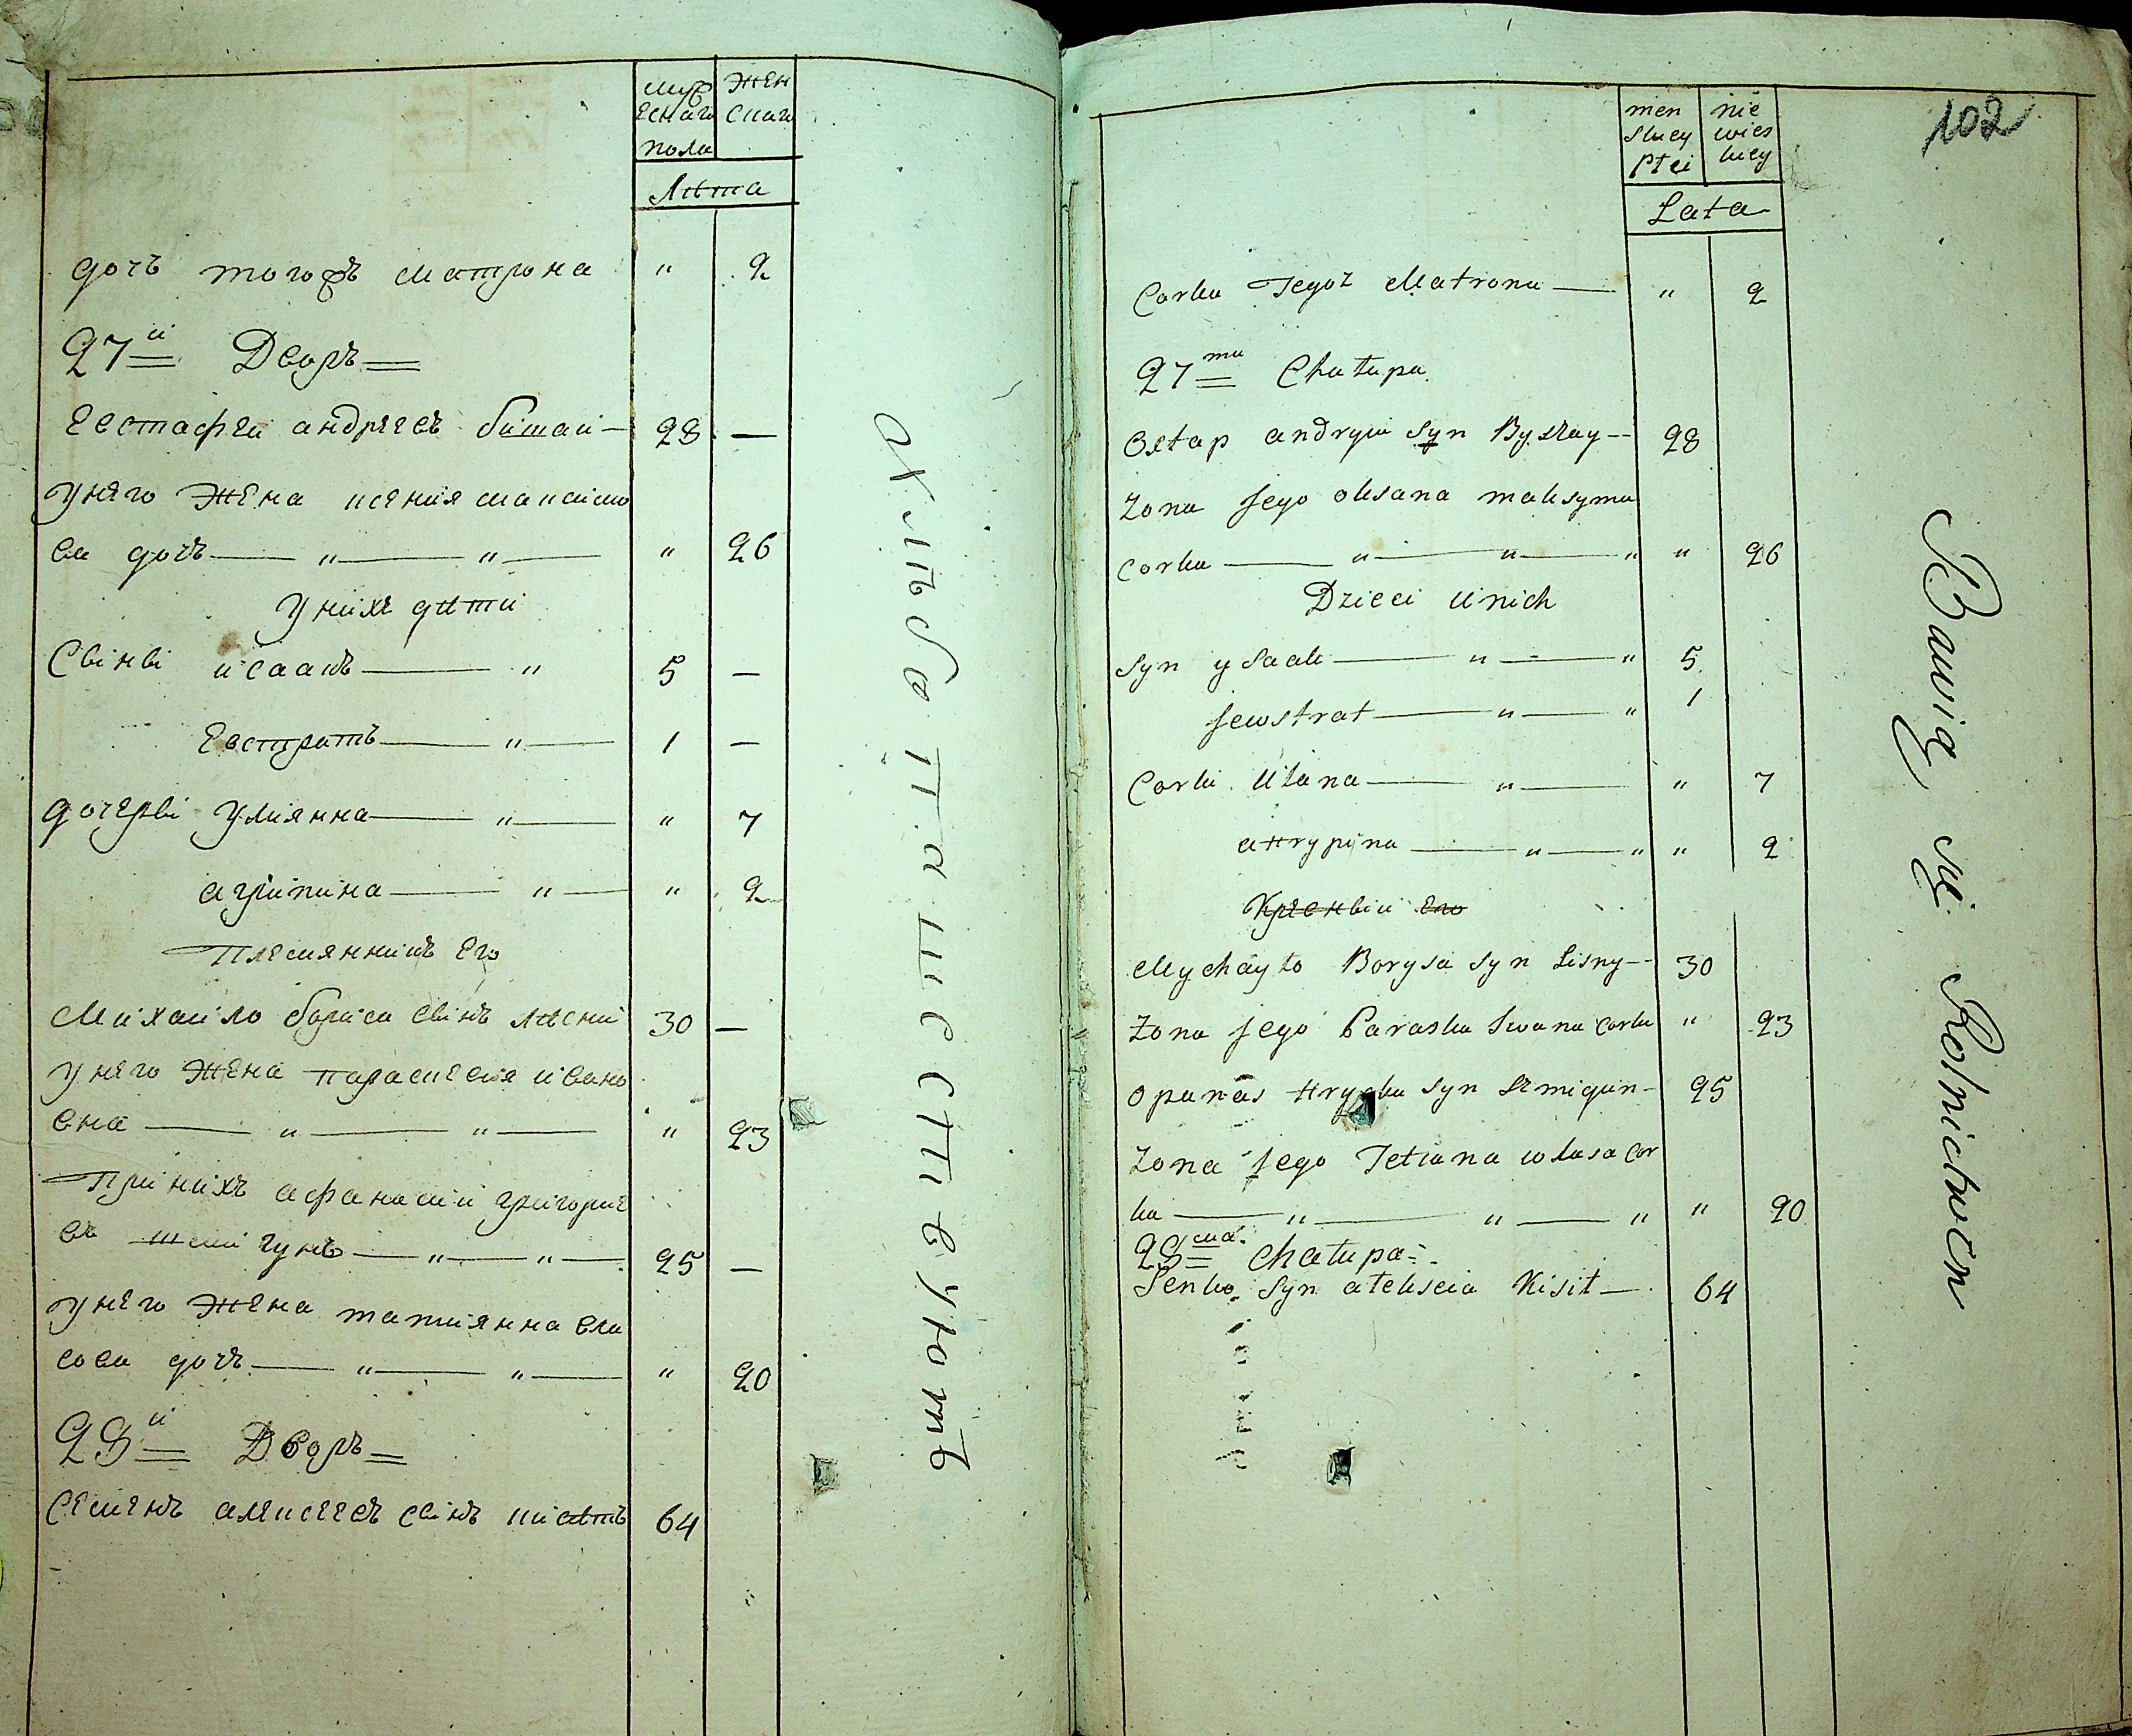 муж Жен
ескаго скаго
пола
Лѣта
дочь тогожъ Матрона " 2
27й Дворъ
Евстафей андреевъ бишай — 28 —
Унего Жена ксения максимо
ва дочь — " — " — " 26
Унихъ дѣти
Сыны исаакъ — " 5 —
Евстратъ — " — 1 —
дочеры Улиянна — " — " 7
агрипина — " — " 2
Племянникъ Его
Михаило бориса сынъ лѣсный 30 —
Унего Жена параскевия ивано
вна — " — " — " 23
При нихъ афанасий григорие
въ шмигунъ — " — " — 25 —
Унего Жена татиянна вла
сова дочь — " — " — " 20
28й Дворъ
Семенъ алексеевъ сынъ кисѣль 64
Хлѣбопашествуютъ
102
men nie
skiey wies
Płci kiey
Lata
Corka Tegoż Matrona — " 2
27ma Chałupa
Ostap andryia syn Byszay -- 28
Żona Jego oksana maksyma
corka — " — " — " " 26
Dzieci u nich
Syn ysaak — " — " 5
Jewstrat — " — " 1
Corki Ulana — " — " 7
aHrypina — " — " " 2
Mychayło Borysa syn Lisny -- 30
Żona Jego Paraska Iwana corka " 23
Opanas Hryćka syn Szmigun - 25
Żona Jego Tetiana własa cor
ka — " — " — " " 20
28ma Chałupa
Senko syn ałekseia Kisil — 64
Bawią się Rolnictwem